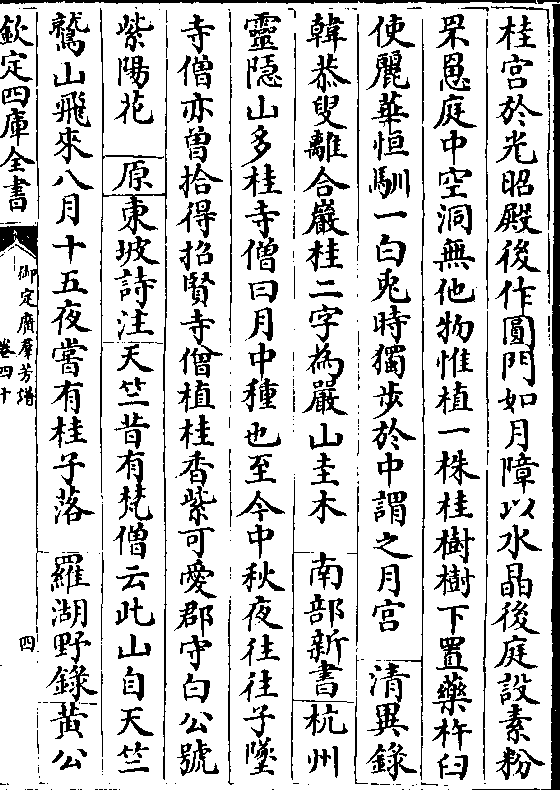 桂宮於光昭殿後作圓門如月障以水晶後庭設素粉
罘罳庭中空洞無他物惟植一株桂樹樹下置藥杵臼
使麗華恒馴一白兎時獨步於中謂之月宮 清異錄
韓恭叟離合巖桂二字為巖山圭木 南部新書 杭州
靈隠山多桂寺僧曰月中種也至今中秋夜往往子墜
寺僧亦曾拾得招賢寺僧植桂香紫可愛郡守白公號
紫陽花 原 東坡詩注 天竺昔有梵僧云此山自天竺
鷲山飛來八月十五夜嘗有桂子落 羅湖野錄 黃公
欽定四庫全書
御定廣羣芳譜
卷四十
四